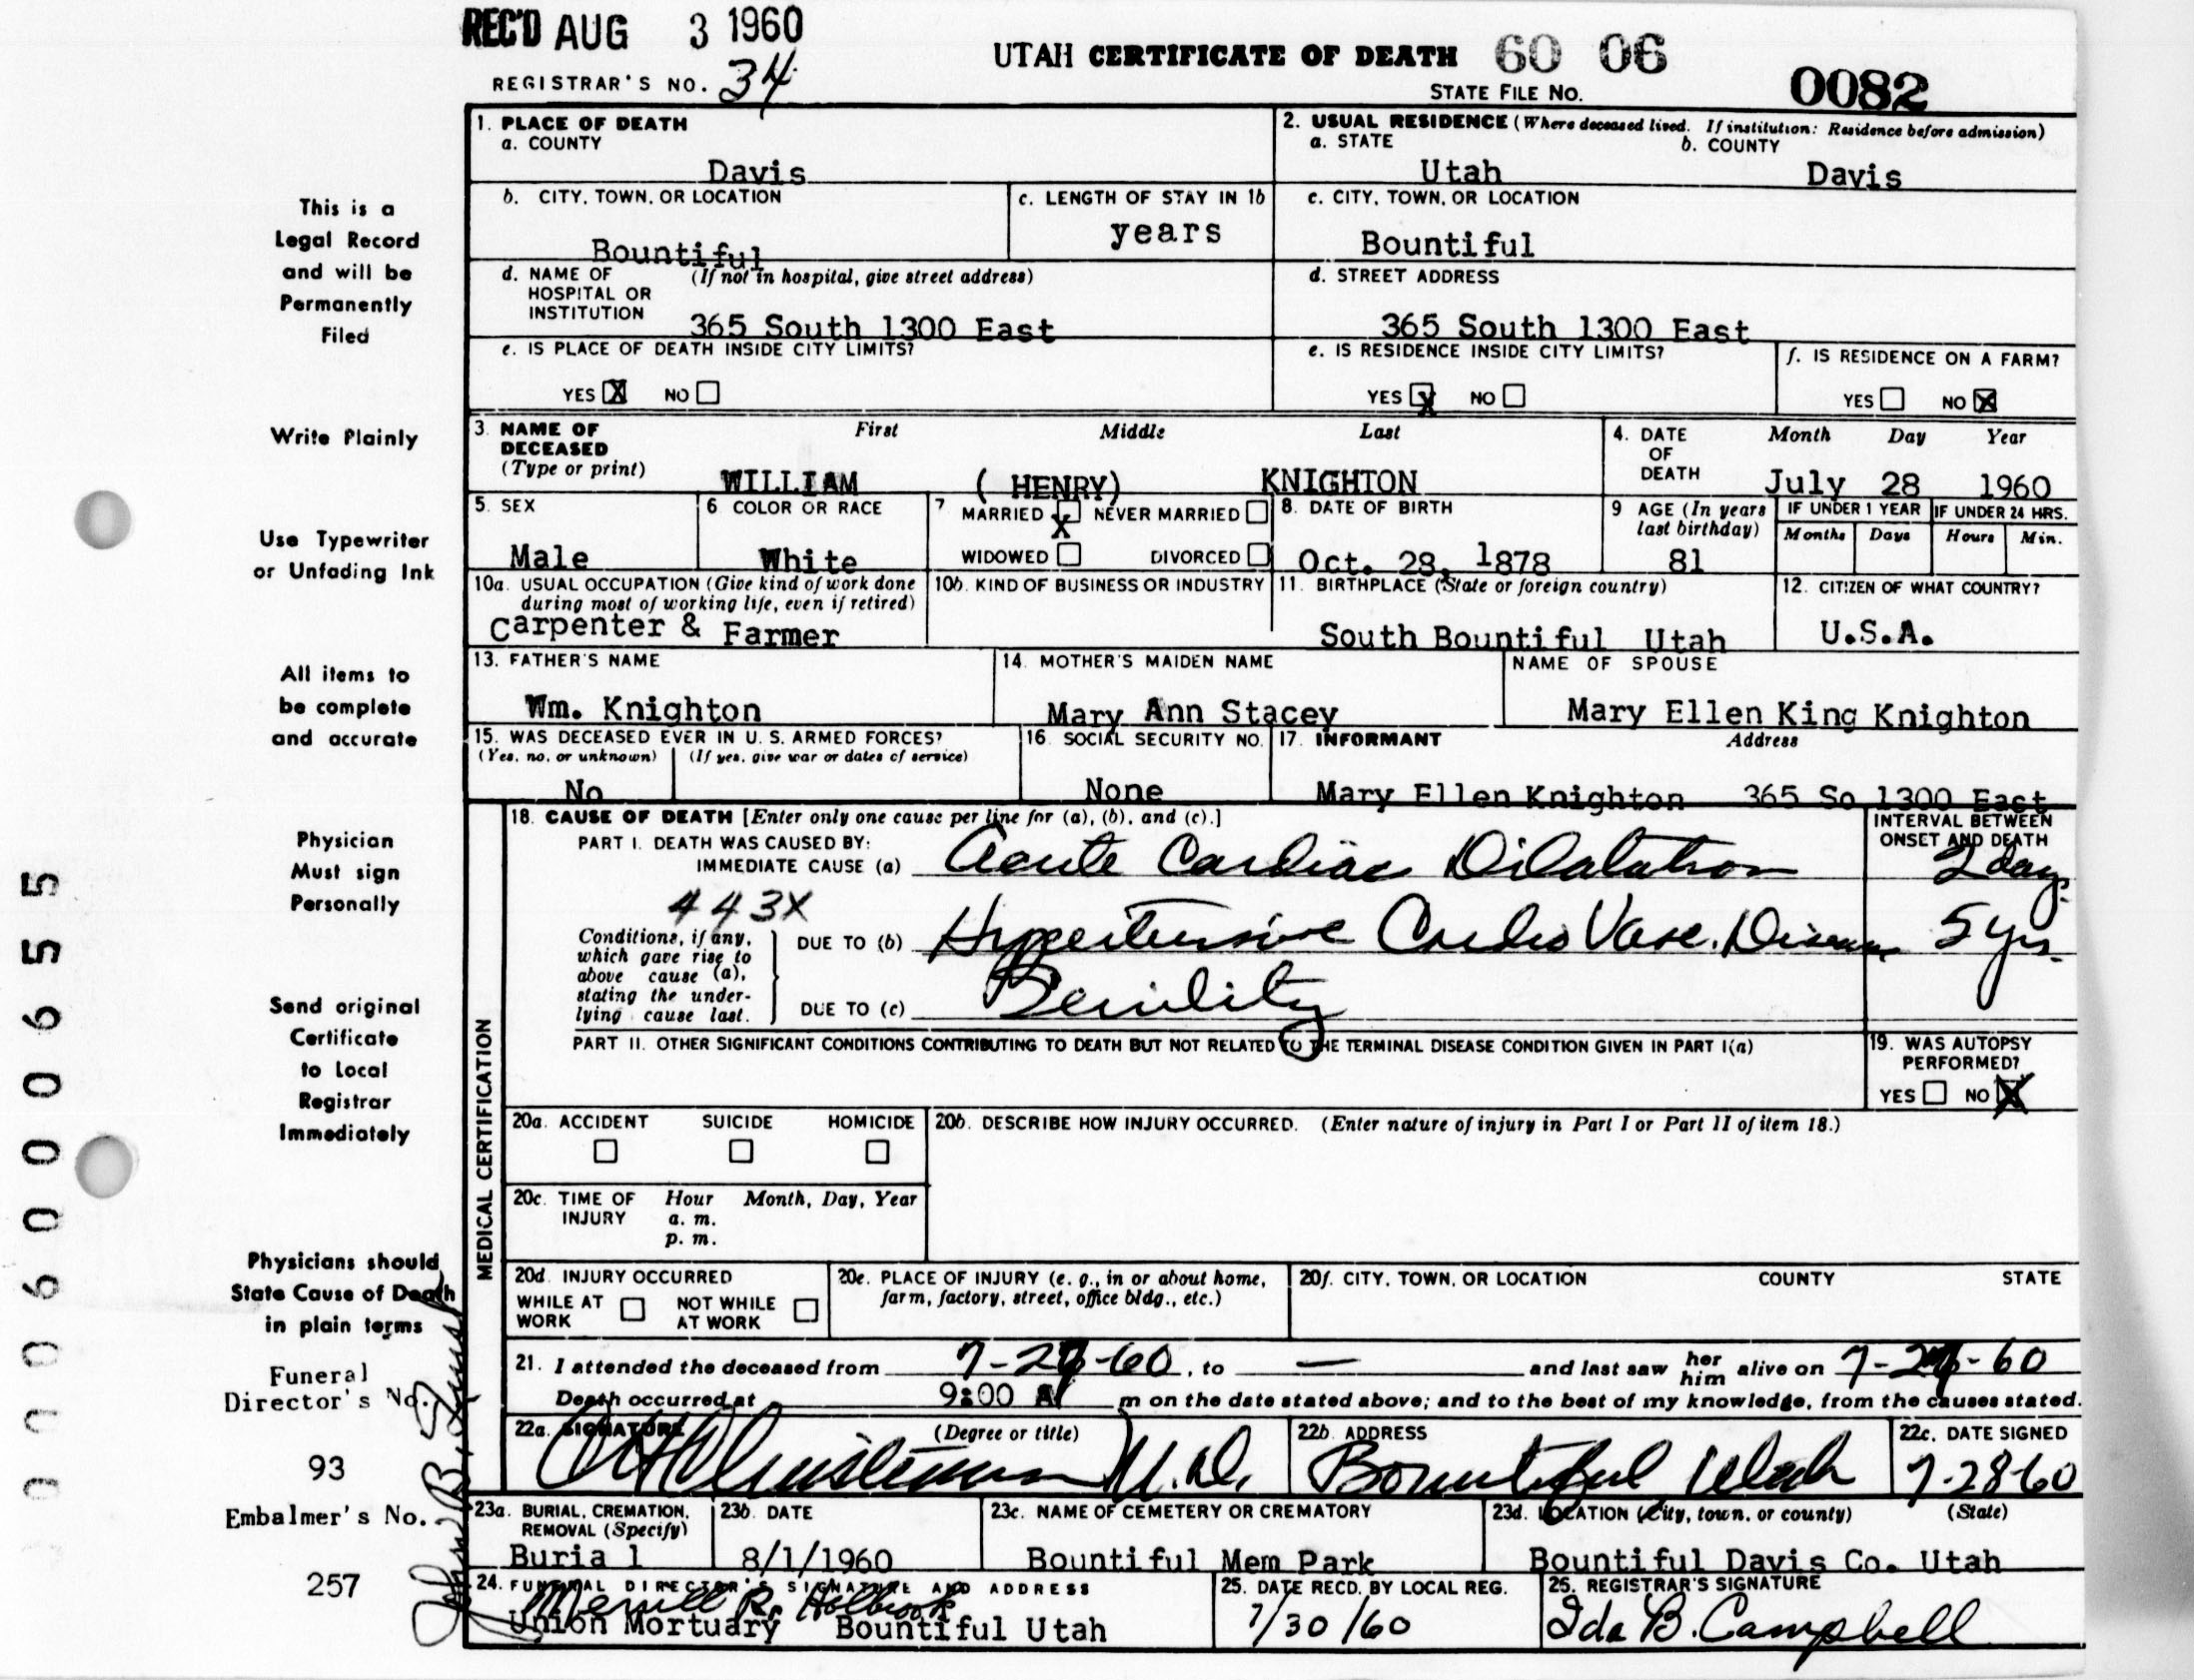 REC'D AUG 3 1960
REGISTRAR'S NO. 34
UTAH CERTIFICATE OF DEATH 60 06
STATE FILE NO. 0082
1. PLACE OF DEATH
a. COUNTY
Davis
2. USUAL RESIDENCE (Where deceased lived. If institution: Residence before admission)
a. STATE b. COUNTY
Utah Davis
b. CITY, TOWN, OR LOCATION
Bountiful
c. LENGTH OF STAY IN 1b
years
c. CITY, TOWN, OR LOCATION
Bountiful
d. NAME OF (If not in hospital, give street address)
HOSPITAL OR
INSTITUTION
365 South 1300 East
d. STREET ADDRESS
365 South 1300 East
e. IS PLACE OF DEATH INSIDE CITY LIMITS?
YES X NO
e. IS RESIDENCE INSIDE CITY LIMITS?
YES X NO
f. IS RESIDENCE ON A FARM?
YES NO X
3. NAME OF First Middle Last
DECEASED
(Type or print)
WILLIAM ( HENRY) KNIGHTON
4. DATE Month Day Year
OF
DEATH
July 28 1960
5. SEX
Male
6 COLOR OR RACE
White
7 MARRIED X NEVER MARRIED
WIDOWED DIVORCED
8. DATE OF BIRTH
Oct. 28, 1878
9 AGE (In years
last birthday)
81
IF UNDER 1 YEAR IF UNDER 24 HRS.
Months Days Hours Min.
10a. USUAL OCCUPATION (Give kind of work done
during most of working life, even if retired)
Carpenter & Farmer
10b. KIND OF BUSINESS OR INDUSTRY
11. BIRTHPLACE (State or foreign country)
South Bountiful Utah
12. CITIZEN OF WHAT COUNTRY?
U.S.A.
13. FATHER'S NAME
Wm. Knighton
14. MOTHER'S MAIDEN NAME
Mary Ann Stacey
NAME OF SPOUSE
Mary Ellen King Knighton
15. WAS DECEASED EVER IN U. S. ARMED FORCES?
(Yes, no, or unknown) (If yes, give war or dates of service)
No
16. SOCIAL SECURITY NO.
None
17. INFORMANT Address
Mary Ellen Knighton 365 So 1300 East
MEDICAL CERTIFICATION
18. CAUSE OF DEATH [Enter only one cause per line for (a), (b), and (c).]
INTERVAL BETWEEN
ONSET AND DEATH
PART I. DEATH WAS CAUSED BY:
IMMEDIATE CAUSE (a) Acute Cardiac Dilatation 2 days
443X
Conditions, if any,
which gave rise to
above cause (a),
stating the under-
lying cause last.
DUE TO (b) Hypertensive Cardio Vasc. Disease 5 yrs.
DUE TO (c) Senility
PART II. OTHER SIGNIFICANT CONDITIONS CONTRIBUTING TO DEATH BUT NOT RELATED TO THE TERMINAL DISEASE CONDITION GIVEN IN PART I(a)
19. WAS AUTOPSY
PERFORMED?
YES NO X
20a. ACCIDENT SUICIDE HOMICIDE
20b. DESCRIBE HOW INJURY OCCURRED. (Enter nature of injury in Part I or Part II of item 18.)
20c. TIME OF Hour Month, Day, Year
INJURY a. m.
p. m.
20d. INJURY OCCURRED
WHILE AT NOT WHILE
WORK AT WORK
20e. PLACE OF INJURY (e. g., in or about home,
farm, factory, street, office bldg., etc.)
20f. CITY, TOWN, OR LOCATION COUNTY STATE
21. I attended the deceased from 7-2-60, to — and last saw her him alive on 7-2-60
Death occurred at 9:00 A m on the date stated above; and to the best of my knowledge, from the causes stated.
22a. SIGNATURE (Degree or title)
M.D.
22b. ADDRESS
Bountiful Utah
22c. DATE SIGNED
7-28-60
23a. BURIAL, CREMATION,
REMOVAL (Specify)
Burial
23b. DATE
8/1/1960
23c. NAME OF CEMETERY OR CREMATORY
Bountiful Mem Park
23d. LOCATION (City, town, or county) (State)
Bountiful Davis Co. Utah
24. FUNERAL DIRECTOR'S SIGNATURE AND ADDRESS
Merrill R. Holbrook
Union Mortuary Bountiful Utah
25. DATE RECD. BY LOCAL REG.
7/30/60
25. REGISTRAR'S SIGNATURE
Ida B. Campbell
This is a
Legal Record
and will be
Permanently
Filed
Write Plainly
Use Typewriter
or Unfading Ink
All items to
be complete
and accurate
Physician
Must sign
Personally
Send original
Certificate
to Local
Registrar
Immediately
Physicians should
State Cause of Death
in plain terms
Funeral
Director's No.
93
Embalmer's No.
257
John B.
0006000655